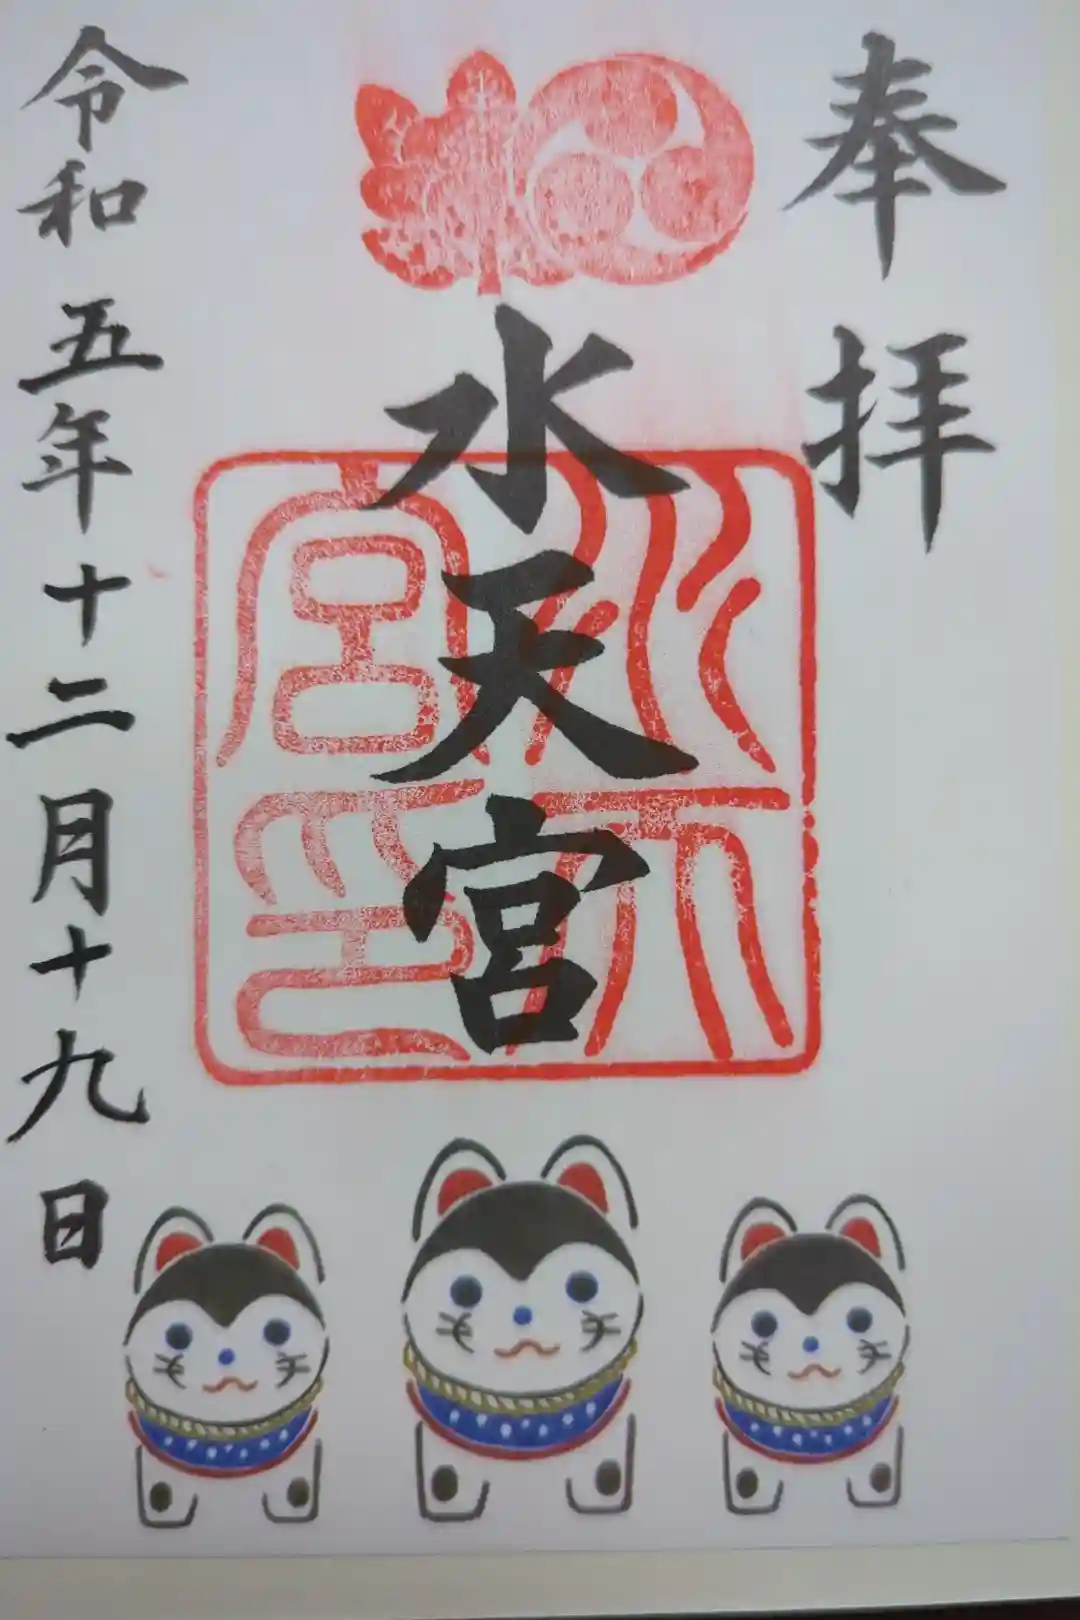 奉拝
水天宮
水天宮印
令和五年十二月十九日